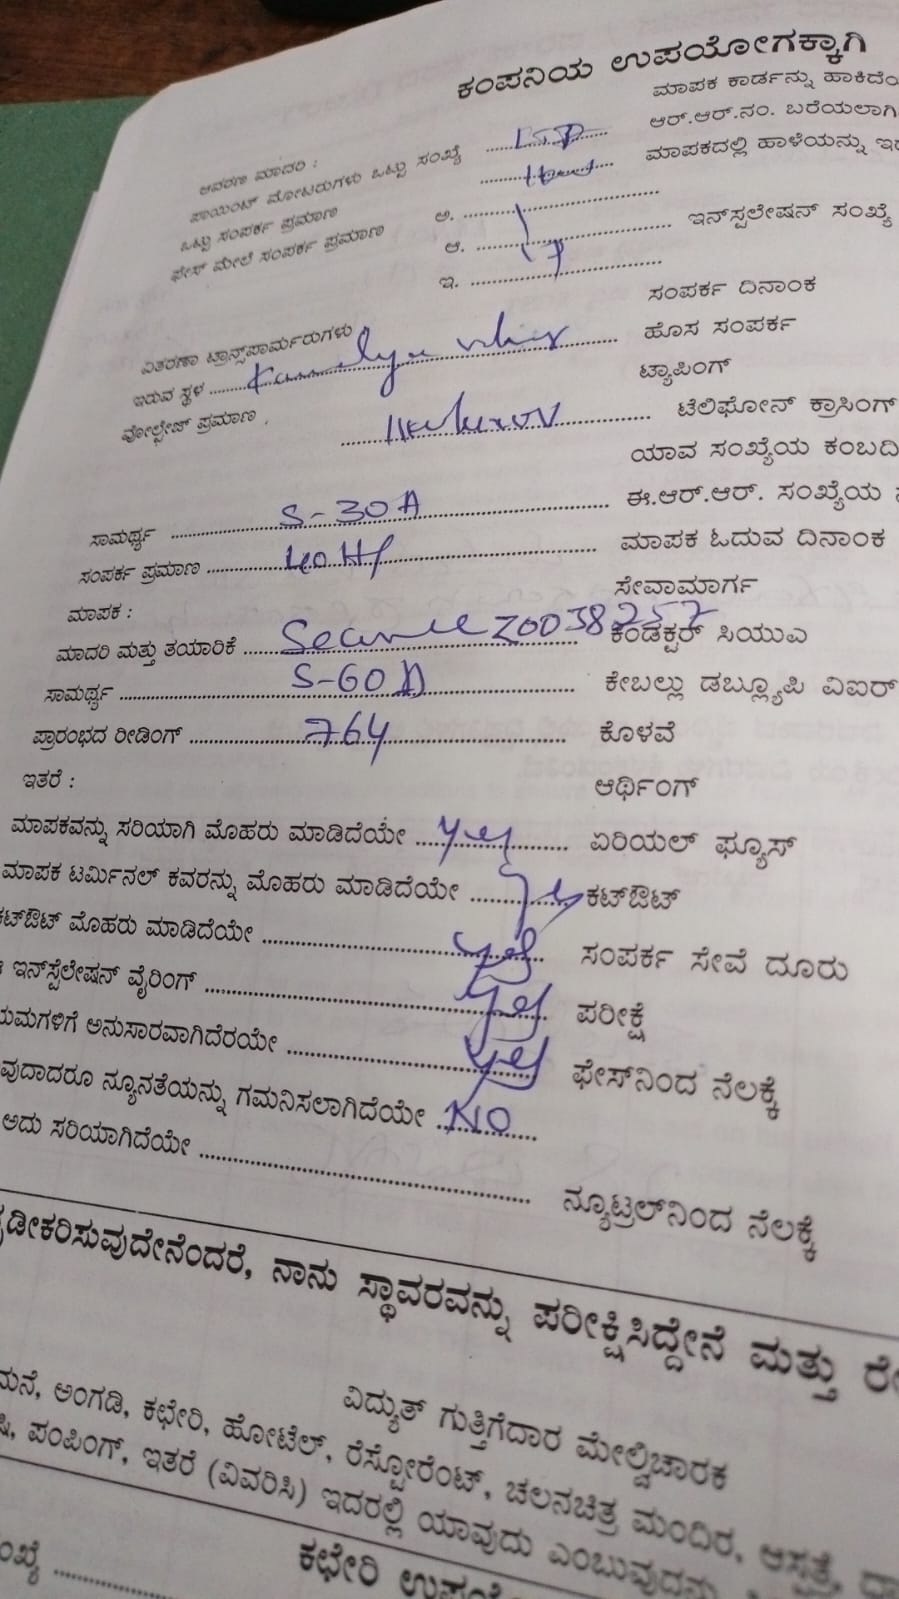 ಕಂಪನಿಯ ಉಪಯೋಗಕ್ಕಾಗಿ
ಮಾಪಕ ಕಾರ್ಡನ್ನು ಹಾಕಿದೆಯ
ಆವರಣ ಮಾದರಿ :
ಆರ್.ಆರ್.ನಂ. ಬರೆಯಲಾಗಿ
ಪಾಯಿಂಟ್ ಮೋಟರುಗಳು ಒಟ್ಟು ಸಂಖ್ಯೆ ....................
ಮಾಪಕದಲ್ಲಿ ಹಾಳೆಯನ್ನು ಇ
ಒಟ್ಟು ಸಂಪರ್ಕ ಪ್ರಮಾಣ
ಅ. ....................
ಫೇಸ್ ಮೇಲೆ ಸಂಪರ್ಕ ಪ್ರಮಾಣ
ಆ. .................... ಇನ್‌ಸ್ಟಲೇಷನ್ ಸಂಖ್ಯೆ
ಇ. ....................
ಸಂಪರ್ಕ ದಿನಾಂಕ
ವಿತರಣಾ ಟ್ರಾನ್ಸ್‌ಪಾರ್ಮರುಗಳು
ಹೊಸ ಸಂಪರ್ಕ
ಇರುವ ಸ್ಥಳ ....................
ಟ್ಯಾಪಿಂಗ್
ವೋಲ್ಟೇಜ್ ಪ್ರಮಾಣ .................... ಟೆಲಿಫೋನ್ ಕ್ರಾಸಿಂಗ್
ಯಾವ ಸಂಖ್ಯೆಯ ಕಂಬದಿ
ಸಾಮರ್ಥ್ಯ .......... S-30A .......... ಈ.ಆರ್.ಆರ್. ಸಂಖ್ಯೆಯ
ಸಂಪರ್ಕ ಪ್ರಮಾಣ .......... 40HP .......... ಮಾಪಕ ಓದುವ ದಿನಾಂಕ
ಮಾಪಕ : ಸೇವಾಮಾರ್ಗ
ಮಾದರಿ ಮತ್ತು ತಯಾರಿಕೆ .......... Secure Z0038257 ಕಂಡಕ್ಟರ್ ಸಿಯುಎ
ಸಾಮರ್ಥ್ಯ .......... S-60A .......... ಕೇಬಲ್ಲು ಡಬ್ಲ್ಯೂಪಿ ವಿಐರ್
ಪ್ರಾರಂಭದ ರೀಡಿಂಗ್ .......... 764 .......... ಕೊಳವೆ
ಇತರೆ : ಆರ್ಥಿಂಗ್
ಮಾಪಕವನ್ನು ಸರಿಯಾಗಿ ಮೊಹರು ಮಾಡಿದೆಯೇ .... yes .... ಏರಿಯಲ್ ಫ್ಯೂಸ್
ಮಾಪಕ ಟರ್ಮಿನಲ್ ಕವರನ್ನು ಮೊಹರು ಮಾಡಿದೆಯೇ .... yes .... ಕಟ್‌ಔಟ್
ಕಟ್‌ಔಟ್ ಮೊಹರು ಮಾಡಿದೆಯೇ .......... yes .... ಸಂಪರ್ಕ ಸೇವೆ ದೂರು
ಇನ್‌ಸ್ಟೆಲೇಷನ್ ವೈರಿಂಗ್ .......... yes .... ಪರೀಕ್ಷೆ
ಯಮಗಳಿಗೆ ಅನುಸಾರವಾಗಿದೆರಯೇ .......... yes .... ಫೇಸ್‌ನಿಂದ ನೆಲಕ್ಕೆ
ವುದಾದರೂ ನ್ಯೂನತೆಯನ್ನು ಗಮನಿಸಲಾಗಿದೆಯೇ .... NO ....
ಅದು ಸರಿಯಾಗಿದೆಯೇ .................... ನ್ಯೂಟ್ರಲ್‌ನಿಂದ ನೆಲಕ್ಕೆ
ಢೀಕರಿಸುವುದೇನೆಂದರೆ, ನಾನು ಸ್ಥಾವರವನ್ನು ಪರೀಕ್ಷಿಸಿದ್ದೇನೆ ಮತ್ತು
ವಿದ್ಯುತ್ ಗುತ್ತಿಗೆದಾರ ಮೇಲ್ವಿಚಾರಕ
ಮನೆ, ಅಂಗಡಿ, ಕಛೇರಿ, ಹೋಟೆಲ್, ರೆಸ್ಟೋರೆಂಟ್, ಚಲನಚಿತ್ರ ಮಂದಿರ, ಆಸ್ಪತ್ರೆ,
ಪಂಪಿಂಗ್, ಇತರೆ (ವಿವರಿಸಿ) ಇದರಲ್ಲಿ ಯಾವುದು ಎಂಬುವುದನ್ನು
ಕಛೇರಿ
ಂಖ್ಯೆ ....................